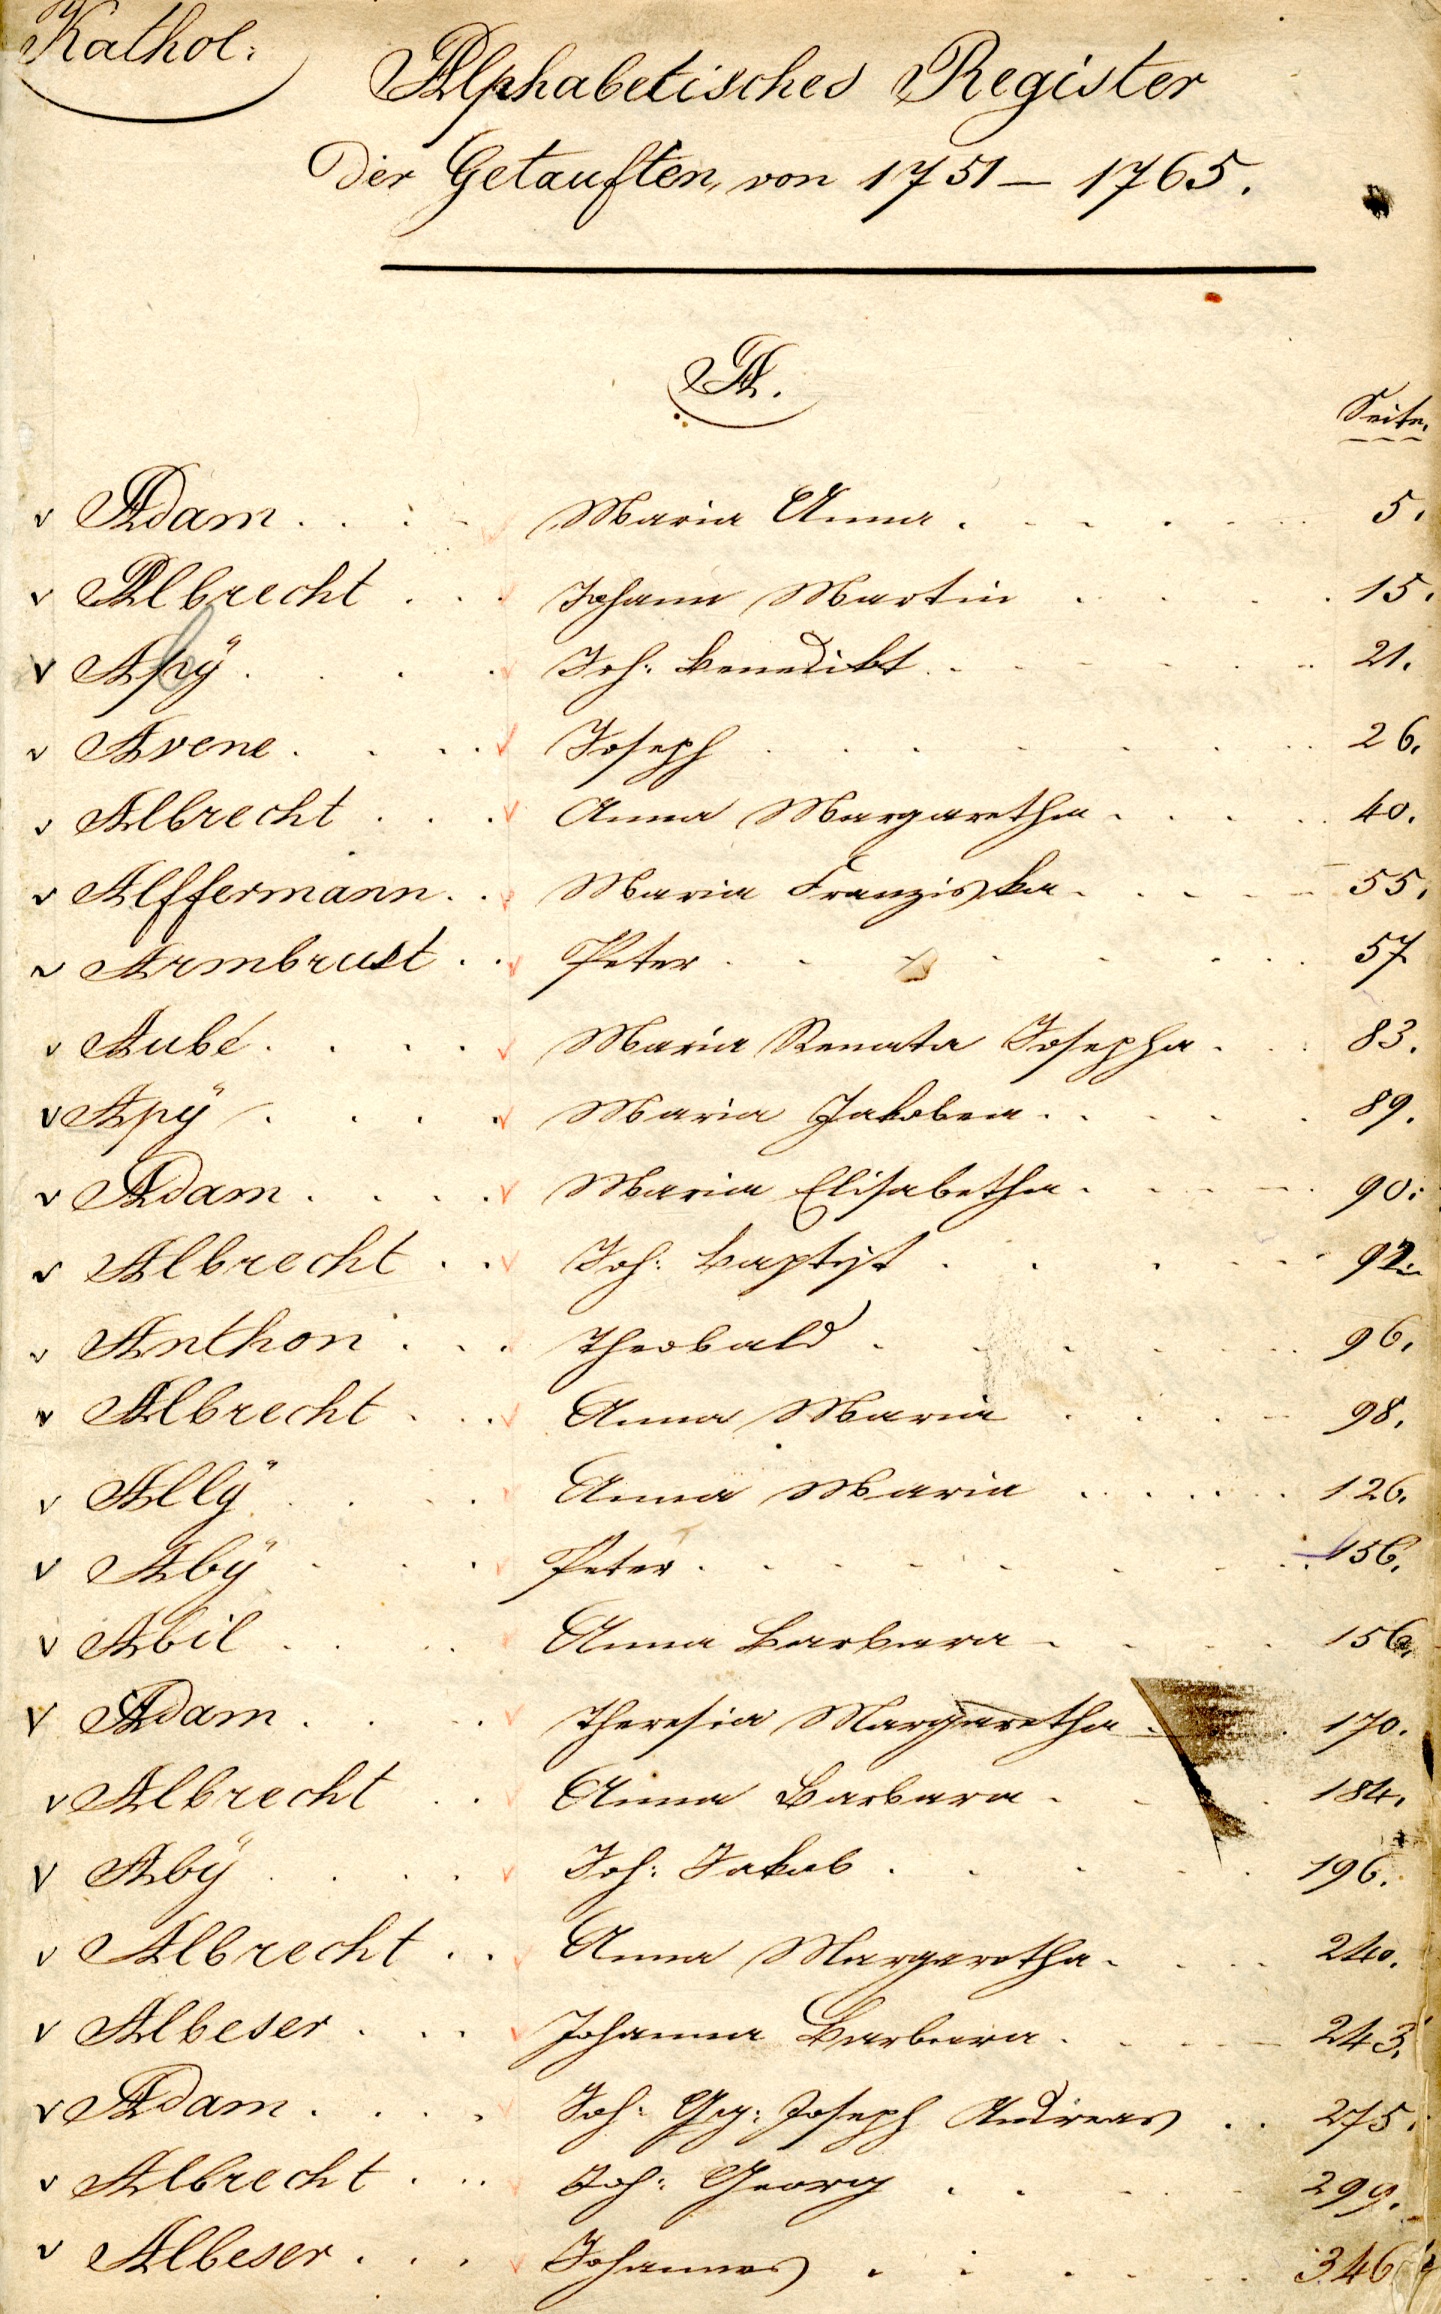 Kathol:
Alphabetisches Register
Der Getauften, von 1751 – 1765.
A.
Seite.
Adam . . . . Maria Anna . . . . . 5.
Albrecht . . . Johann Martin . . . . 15.
Apÿ . . . . Joh: Benedikt . . . . . 21.
Avene . . . . Joseph . . . . . . 26.
Albrecht . . . Anna Margaretha . . . . 40.
Alffermann . . Maria Franziska . . . . 55.
Armbrust . . Peter . . . . . . 57
Aubé . . . . Maria Renata Josepha . . . 83.
Apÿ . . . . Maria Jakobea . . . . . 89.
Adam . . . . Maria Elisabetha . . . . 90.
Albrecht . . Joh: Baptist . . . . . 92.
Anthon . . . Theobald . . . . . . 96.
Albrecht . . . Anna Maria . . . . 98.
Allÿ . . . . Anna Maria . . . . . . 126.
Abÿ . . . . Peter . . . . . . . 156.
Abil . . . . Anna Barbara . . . . 156.
Adam . . . . Theresia Margaretha . . . 170.
Albrecht . . Anna Barbara . . . . 184.
Abÿ . . . . Joh: Jakob . . . . . 196.
Albrecht . . Anna Margaretha . . . . 240.
Albeser . . . Johanna Barbara . . . . 243.
Adam . . . . Joh: Gg: Joseph Andreas . . 275.
Albrecht . . . Joh: Georg . . . . . 299.
Albeser . . . Johannes . . . . . 346